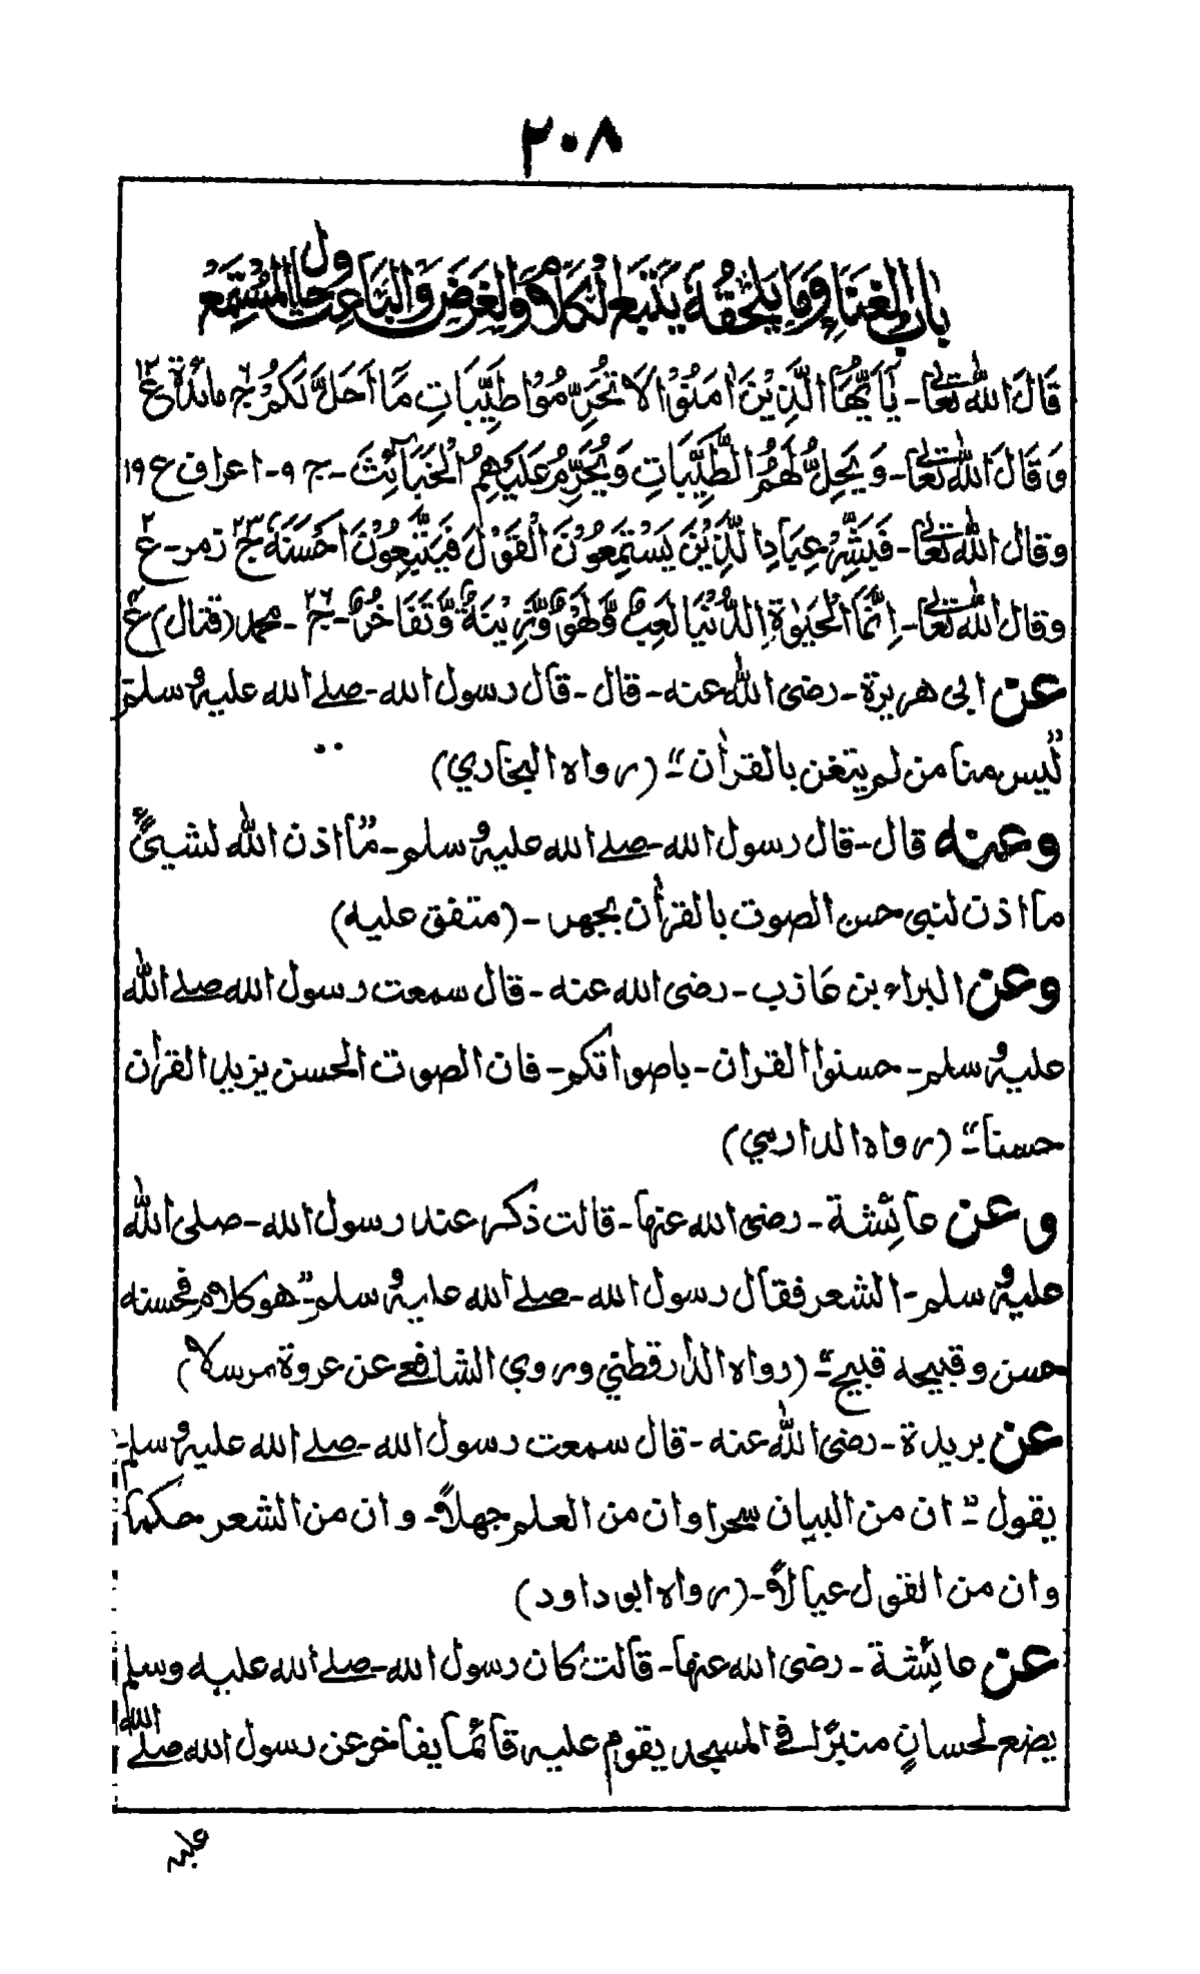 ٢٠٨
باب الغناء وما يلحقه يتبع الكلام والغرض والباعث ول حال المستمع
قَالَ اللّٰه تعالٰى۔ يٰٓاَيُّهَا الَّذِيْنَ اٰمَنُوْا لَا تُحَرِّمُوْا طَيِّبَاتِ مَآ اَحَلَّ لَكُمْ ج ٦ مائدة ع ١٢
وَقَالَ اللّٰه تعالٰى۔ وَيُحِلُّ لَهُمُ الطَّيِّبَاتِ وَيُحَرِّمُ عَلَيْهِمُ الْخَبَآئِثَ۔ ج ٩۔ اعراف ع ١٩
وقال اللّٰه تعالٰى۔ فَبَشِّرْ عِبَادِ الَّذِيْنَ يَسْتَمِعُوْنَ الْقَوْلَ فَيَتَّبِعُوْنَ اَحْسَنَهٗ ج ٢٣ زمر۔ ع ٢
وقال اللّٰه تعالٰى۔ اِنَّمَا الْحَيٰوةُ الدُّنْيَا لَعِبٌ وَّلَهْوٌ وَّزِيْنَةٌ وَّتَفَاخُرٌ۔ ج ٢٦۔ محمد (قتال) ع
عن ابى هريرة۔ رضى اللّٰه عنه۔ قال۔ قال رسول الله۔ صلے الله عليه وسلم
"ليس منا من لم يتغن بالقراٰن"۔ (رواه البخاري)
وعنه قال۔ قال رسول الله۔ صلے الله عليه وسلم۔ "ما اذن اللّٰه لشيئ
ما اذن لنبى حسن الصوت بالقراٰن يجهر۔ (متفق عليه)
وعن البراء بن عازب۔ رضى الله عنه۔ قال سمعت رسول الله صلے اللّٰه
عليه وسلم۔ حسنوا القران۔ باصواتكم۔ فان الصوت الحسن يزيد القراٰن
حسنا"۔ (رواه الدارمي)
وعن عائشة۔ رضى الله عنها۔ قالت ذكر عند رسول الله۔ صلى اللّٰه
عليه وسلم۔ الشعر فقال رسول الله۔ صلے الله عليه وسلم۔ "هو كلام فحسنه
حسن وقبيحه قبيح"۔ (رواه الدارقطني وروي الشافعے عن عروة مرسلا)
عن بريدة۔ رضى اللّٰه عنه۔ قال سمعت رسول الله۔ صلے الله عليه وسلم۔
يقول۔ "ان من البيان سحرا وان من العلم جهلاً۔ وان من الشعر حكما
وان من القول عيالاً۔ (رواه ابو داود)
عن عائشة۔ رضى الله عنها۔ قالت كان رسول الله۔ صلے الله عليه وسلم
يضع لحسانٍ منبرًا فے المسجد يقوم عليه قائما يفاخر عن رسول الله صلے اللّٰه
عليه